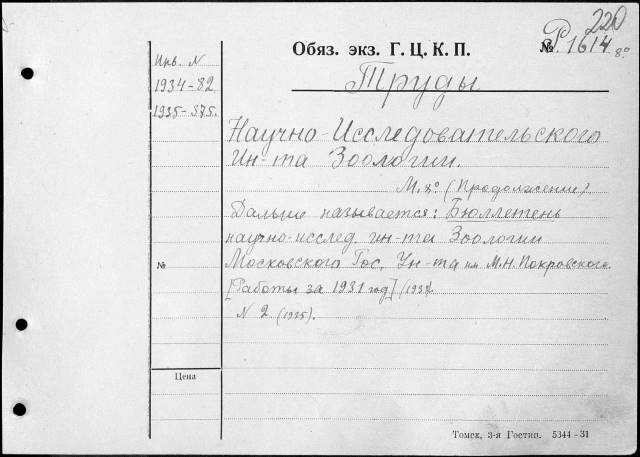 220
Обяз. экз. Г. Ц. К. П.
№ Р. 1614 8°
Труды
Инв. N
1934-82
1935-375.
Научно-Исследовательского
Ин-та Зоологии.
М. 8° (Продолжение).
Дальше называется: Бюллетень
научно-исслед. ин-та Зоологии
Московского Гос. Ун-та им М.Н. Покровского.
№
[Работы за 1931 год]
N 2. (1935).
Цена
Томск, 3-я Гостип. 5344-31